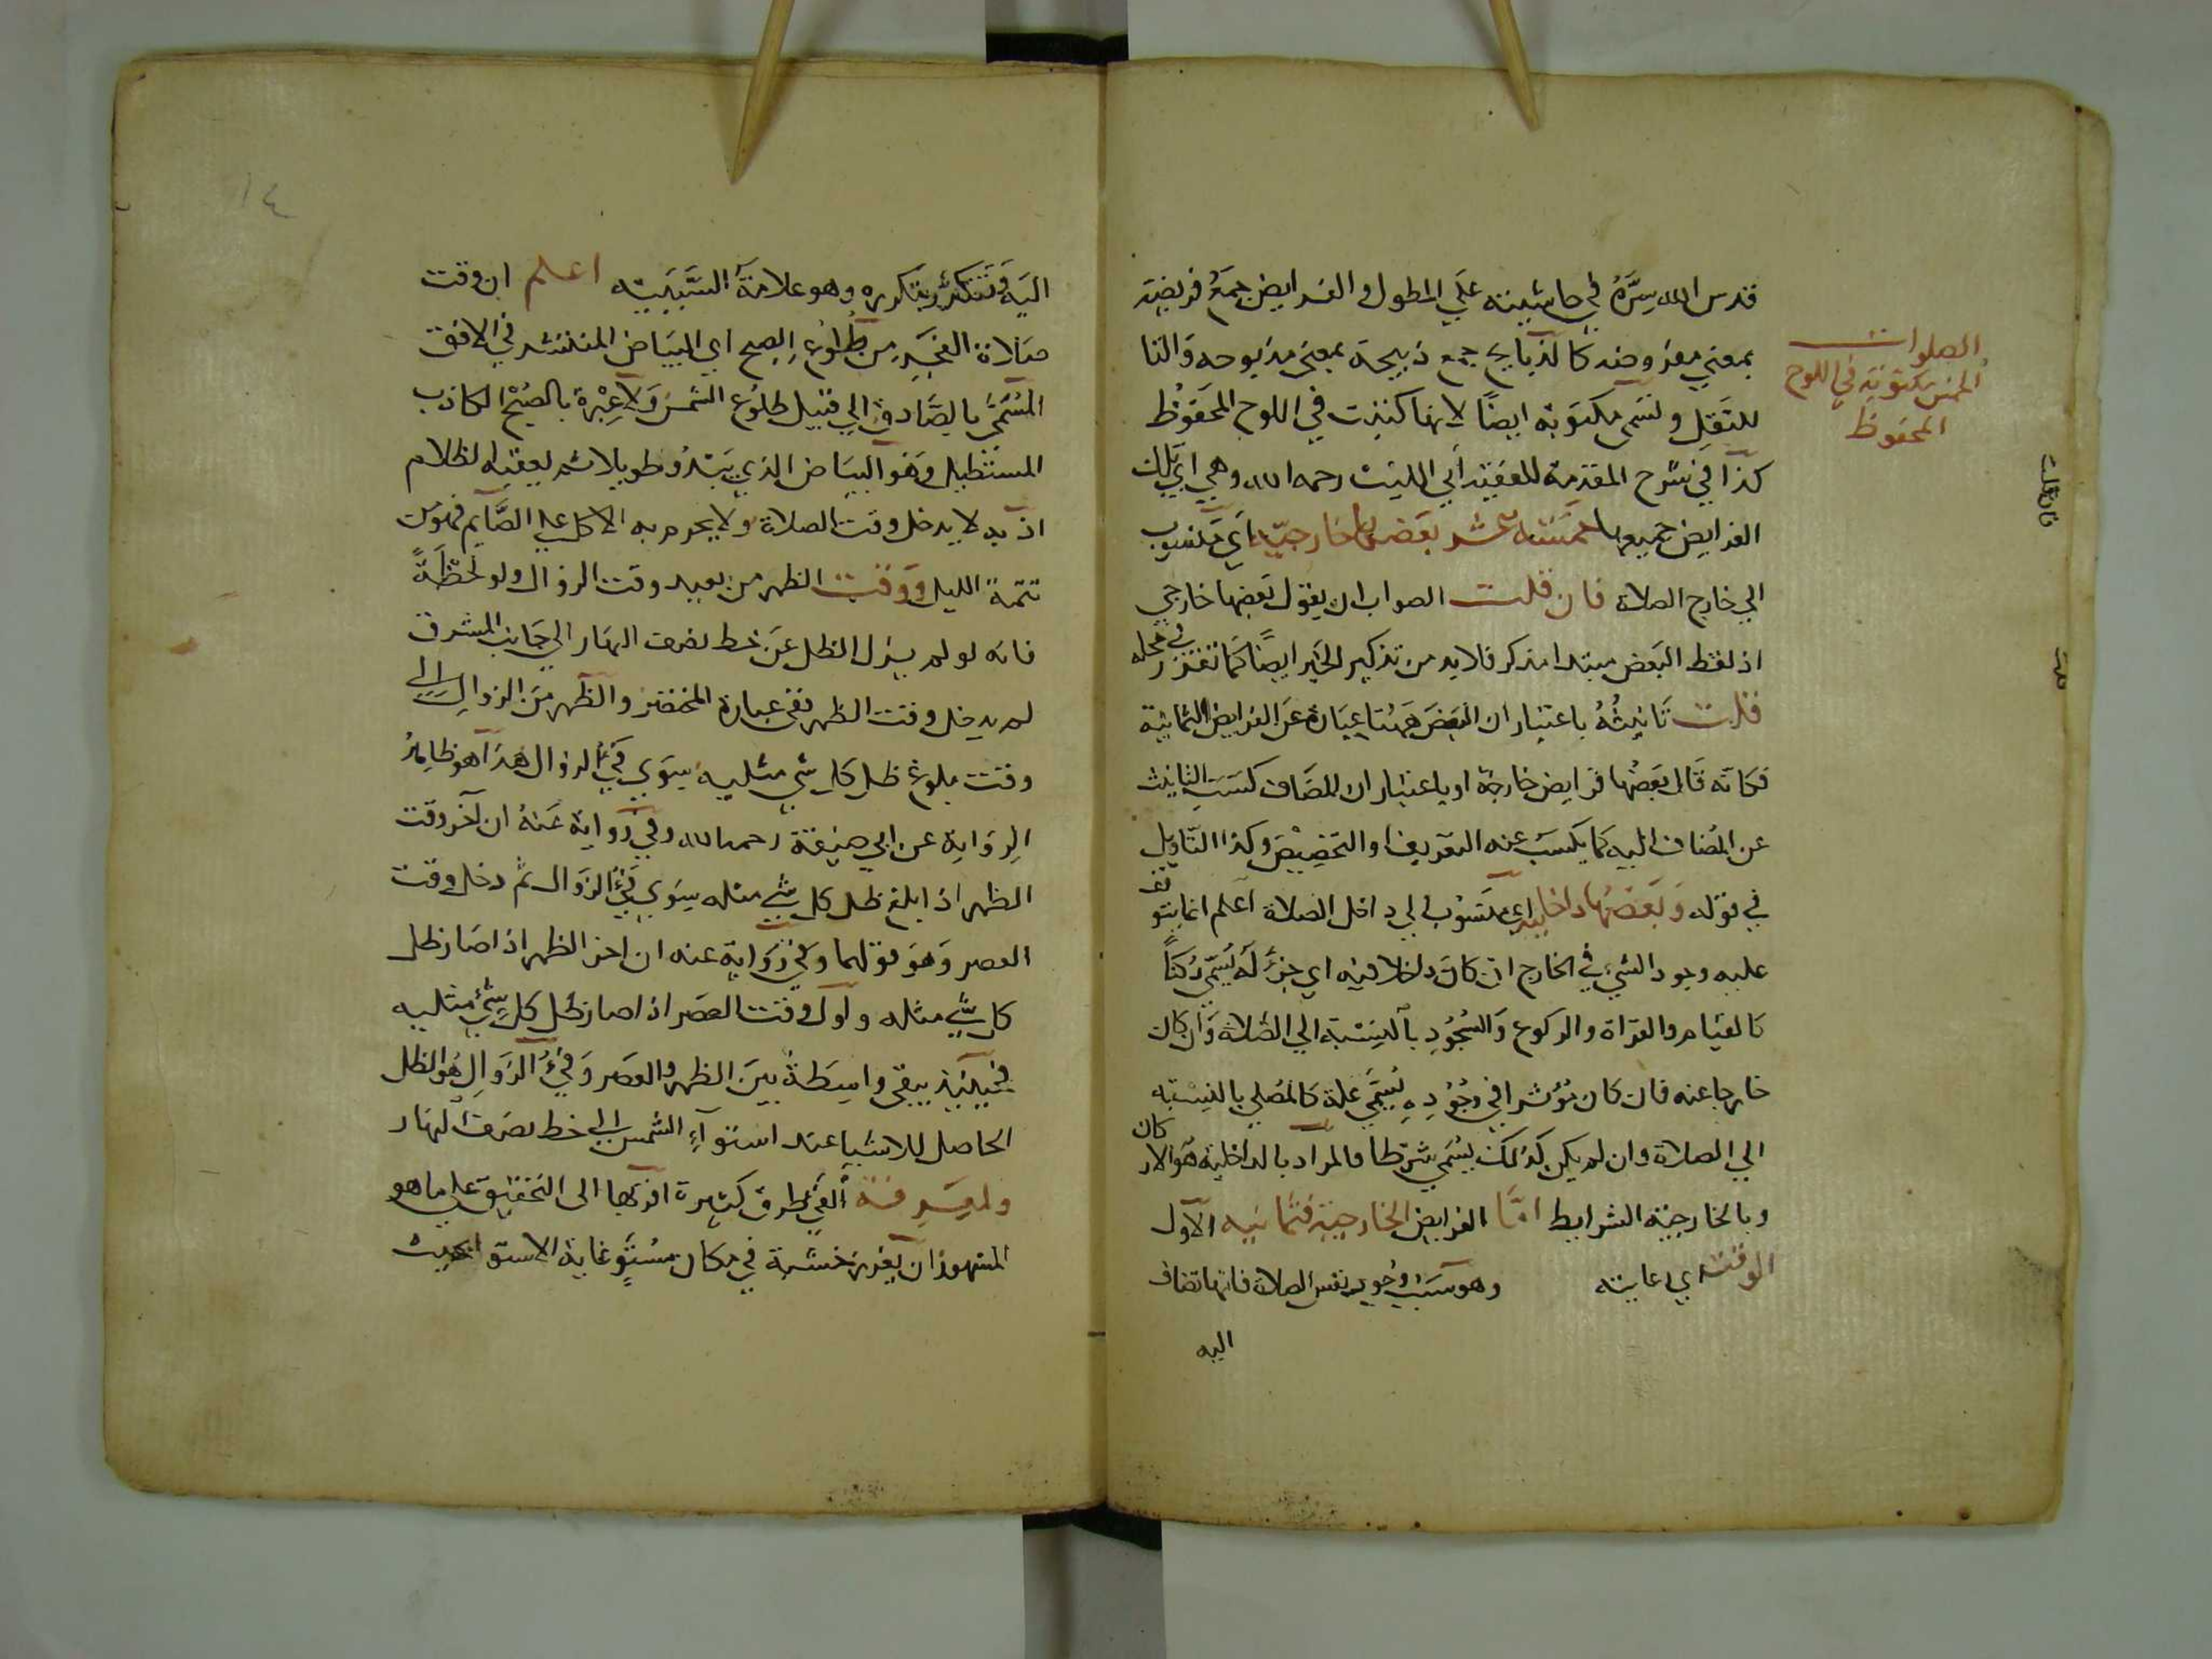 قدس الله سِرَّهُ في حاشيته علي المطول والفرايض جمع فريضة
بمعني مفروضه كالذبايح جمع ذبيحة بمعني مذبوحه والتا
للنقل وتسمى مكتوبة ايضًا لانها كتبت في اللوح المحفوظ
كذا في شرح المقدمة للفقيه أبي الليث رحمه الله وهي اي تلك
الفرايض جميعها خمسة عشر بعضها خارجيّة اي منسوب
الي خارج الصلاة فان قلت الصواب ان يقول بعضها خارجي
اذ لفظ البعض مبتدا مذكر فلا بد من تذكير الخبر ايضًا كما تقرر في محله
قلت تانيثُهُ باعتبار ان البعض ههنا عبارة عن الفرايض الثمانية
فكانه قال بعضها فرايض خارجة او باعتبار ان المضاف كسب التانيث
عن المُضاف اليه كما يكسب عنه التعريف او التخصيص وكذا التاويل
في قوله وبعضها داخلية اي منسوب الي داخل الصلاة اعلم ان ما يتوقف
عليه وجود الشي في الخارج ان كان داخلا فيه اي جزءً له يُسمّى رُكنًا
كالقيام والقراة والركوع والسُّجُودِ بالنِسْبة الي الصّلاة وان كان
خارجا عنه فان كان مُؤثرا في وجُوُدِهِ يُسَمَّي علة كالمُصلي بالنِسْبَة
الي الصلاة وان لم يكن كذلك يُسَمي شرطا فالمراد بالداخلية هو الاركان
وبالخارجيَّة الشرايط امَّا الفرايض الخارجيّة فثمانيه الاول
الوقت اي عايته وهو سبب وُجوب نفس الصلاة فانها تضاف
اليه
الصلوات
الخمس مكتوبة في اللوح
المحفوظ
فان قلت
قلت
١٤
اليه وتتكرّر بتكرره وهو علامة السَّبَبيَّه اعلم ان وقت
صَلاة الفجرِ مِن طُلوُعِ الصبح اي البيَاض المنتشر في الافق
المُسَمَّى بالصَّادق الي قبيل طلوع الشمس ولا عِبْرة بالصبْح الكاذب
المستطيل وهو البيَاض الذي يَبْدُو طويلا ثم يعقبه الظلام
اذ به لا يدخل وقت الصلاة ولا يحرم به الاكل علي الصَّايم فهو من
تتمة الليل ووقت الظهر من بعيد وقت الزوال ولو لَحْظَةً
فانه لو لم يزل الظل عن خط نصف النهار الي جانب المشرق
لم يدخل وقت الظهر ففي عبارة المختصر والظهر من الزوالِ الي
وقت بلوغ ظل كل شي مثليه سِوَي فَيْ الزوال هذا هو ظاهِرُ
الرِوَاية عن ابي حنيفة رحمه الله وفي رواية عَنهُ ان آخر وقت
الظهر اذا بلغ ظل كل شي مثله سِوَي فَيْء الزوال ثم دخل وقت
العصر وهو قولهما وفي رواية عنه ان اخر الظهر اذا صَار ظل
كل شي مثله واول وقت العصر اذا صار ظل كل شيْءٍ مثليه
فحِينَئِذٍ يبقى واسِطَةٌ بَيْنَ الظهر والعصر وَفَيْءُ الزَوَالِ هُو الظل
الحاصل للاشيا عند استوآءِ الشمس الي خط نصف النهار
ولمعرفة الفَيْ طرق كثيرة اقربها الى التحقيق علي ما هو
المشهور ان يغرز خشبة في مكان مستَوٍ غاية الاستواء بحيث